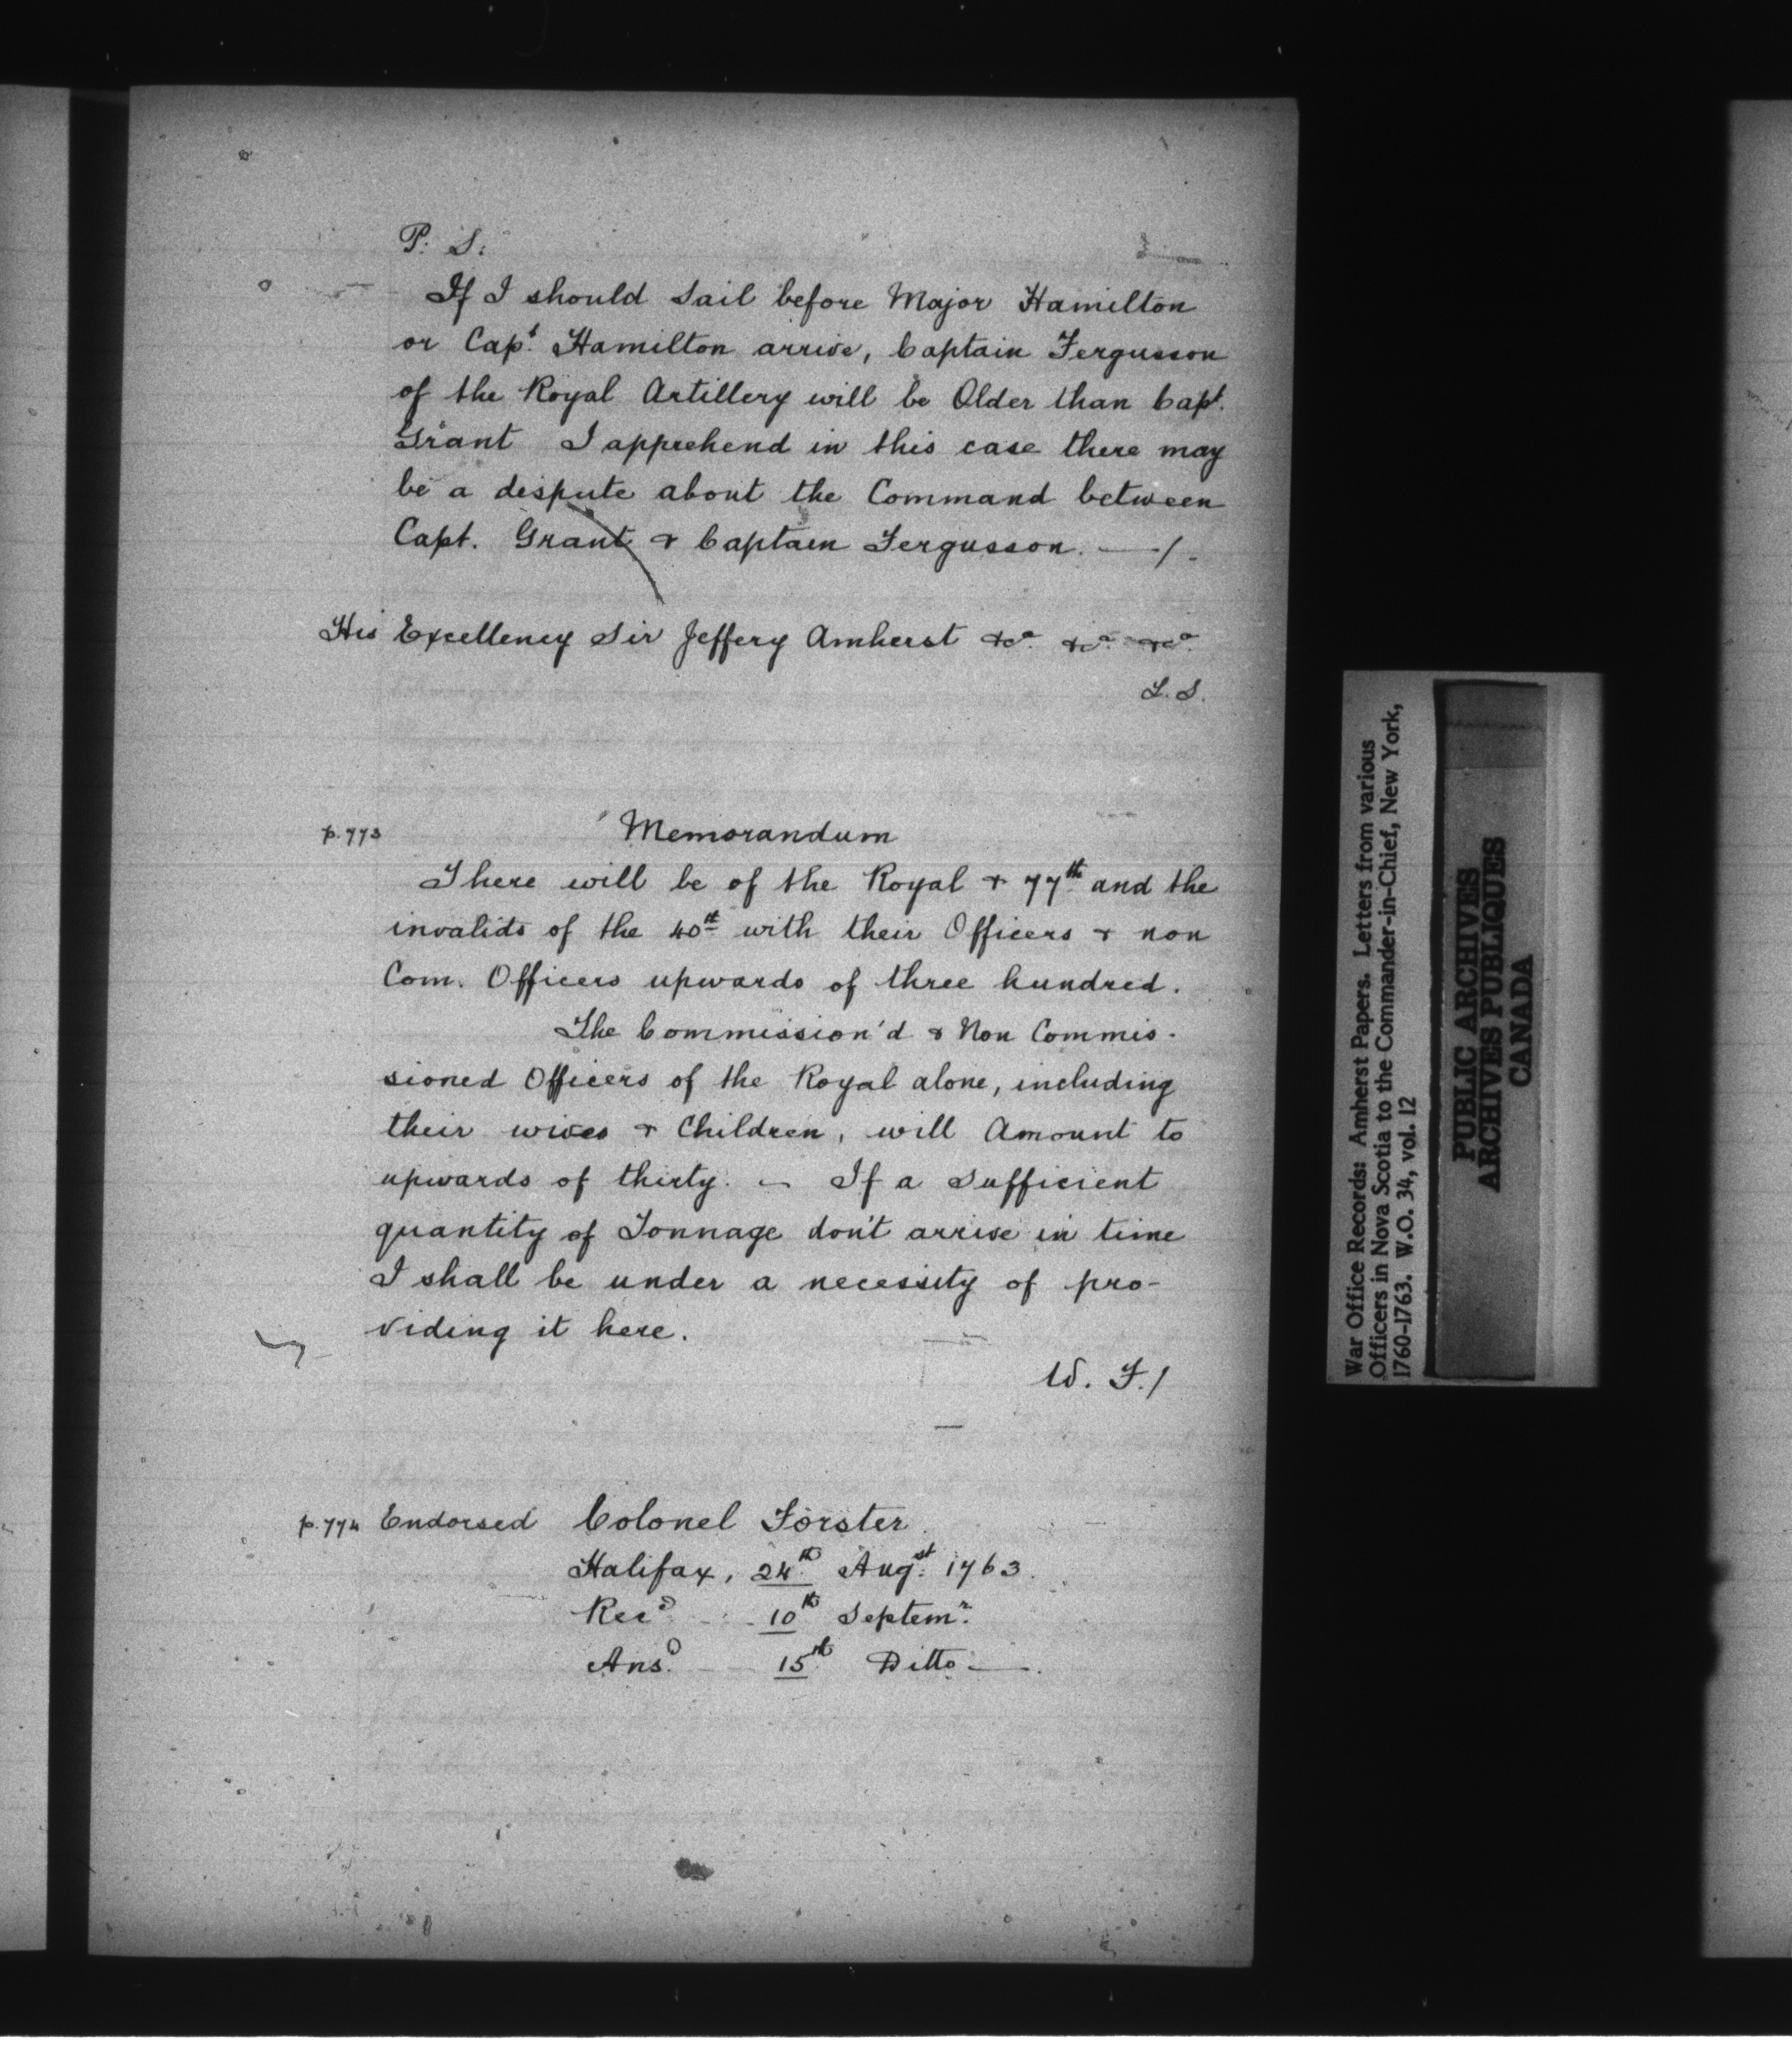 P. S.
If I should Sail before Major Hamilton
or Capt. Hamilton arrive, Captain Fergusson
of the Royal Artillery will be Older than Capt.
Grant I apprehend in this case there may
be a dispute about the Command between
Capt. Grant & Captain Fergusson. —/-
His Excellency Sir Jeffery Amherst &ca. &ca. &ca.
L. S.
p. 773
Memorandum
There will be of the Royal & 77th and the
invalids of the 40th with their Officers & non
Com. Officers upwards of three hundred.
The Commission'd & Non Commis-
sioned Officers of the Royal alone, including
their wives & Children, will Amount to
upwards of thirty. — If a Sufficient
quantity of Tonnage don't arrive in time
I shall be under a necessity of pro-
viding it here.
W. F./
p. 774 Endorsed Colonel Forster.
Halifax, 24th Augst. 1763.
Recd 10th Septemr.
Ansd. 15th Ditto —.
War Office Records: Amherst Papers. Letters from various
Officers in Nova Scotia to the Commander-in-Chief, New York,
1760-1763. W.O. 34, vol. 12
PUBLIC ARCHIVES
ARCHIVES PUBLIQUES
CANADA